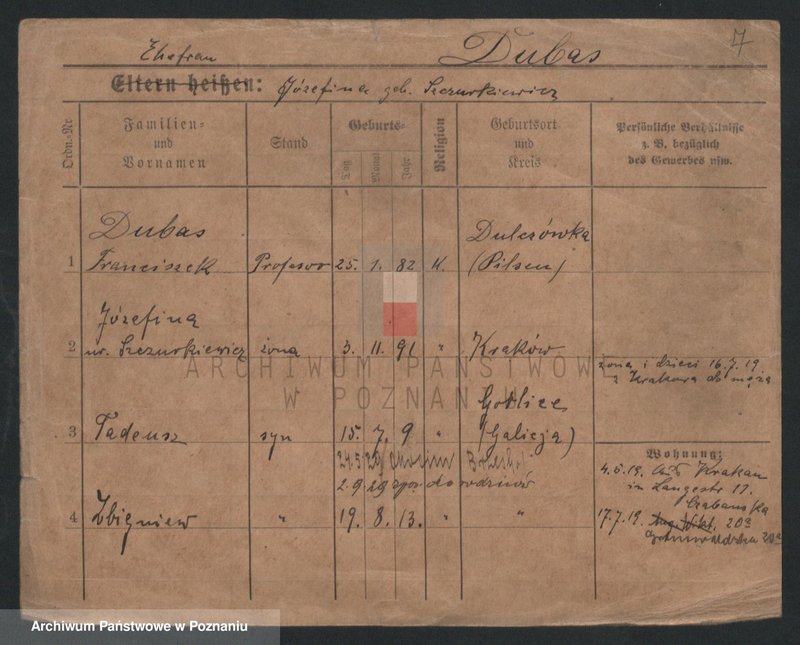 7
Ehefrau Dubas
Eltern heißen: Józefina geb. Szczurkiewicz
Ordn.-Nr.
Familien- und Vornamen
Stand
Geburts-
Tag Monat Jahr
Religion
Geburtsort und Kreis
Persönliche Verhältnisse z. B. bezüglich des Gewerbes usw.
Dubas Dulczówka
1 Franciszek Profesor 25. 1. 82 K. (Pilsen)
Józefina
2 ur. Szczurkiewicz żona 3. 11. 91 " Kraków
żona i dzieci 16.7.19
z Krakowa do męża
ARCHIWUM PAŃSTWOWE
W POZNANIU
Gorlice
3 Tadeusz syn 15. 7. 9 " (Galicja)
Wohnung:
24.5.29
2.9.29 do rodziców
4 Zbigniew " 19. 8. 13. " "
4.6.19. Aus Krakau
in Langestr 11.
17.7.19. 20a
Grunwaldzka 20a
Archiwum Państwowe w Poznaniu